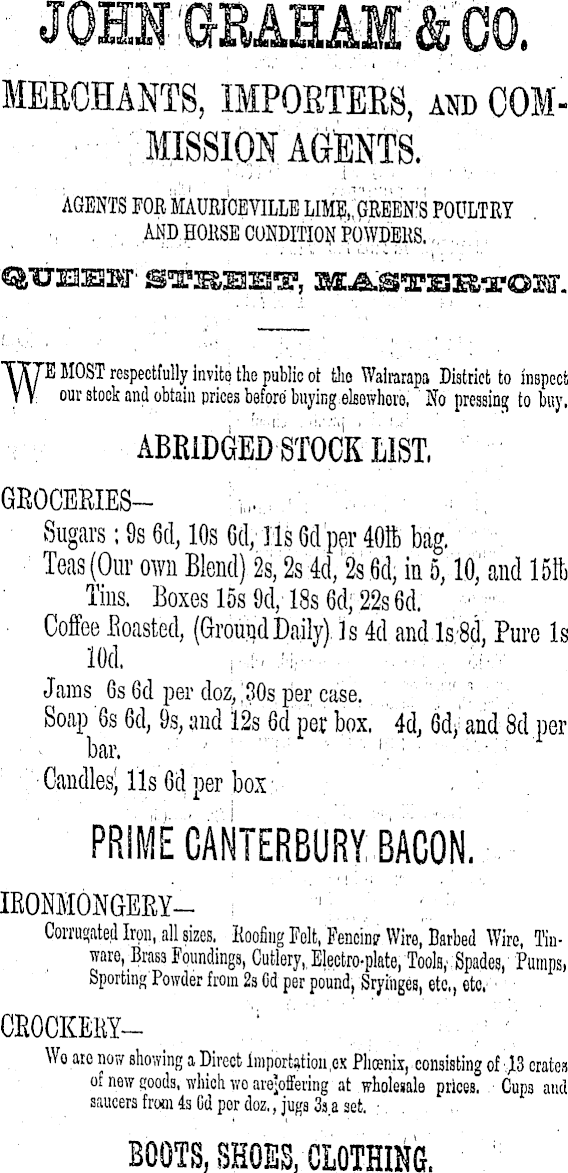 JOHN GRAHAM & CO.
MERCHANTS, IMPORTERS, AND COM-
MISSION AGENTS.
AGENTS FOR MAURICEVILLE LIME, GREEN'S POULTRY
AND HORSE CONDITION POWDERS.
QUEEN STREET, MASTERTON.
WE MOST respectfully invite the public of the Wairarapa District to inspect
our stock and obtain prices before buying elsewhere. No pressing to buy.
ABRIDGED STOCK LIST.
GROCERIES—
Sugars : 9s 6d, 10s 6d, 11s 6d per 40lb bag.
Teas (Our own Blend) 2s, 2s 4d, 2s 6d, in 5, 10, and 15lb
Tins. Boxes 15s 9d, 18s 6d, 22s 6d.
Coffee Roasted, (Ground Daily) 1s 4d and 1s 8d, Pure 1s
10d.
Jams 6s 6d per doz, 30s per case.
Soap 6s 6d, 9s, and 12s 6d per box. 4d, 6d, and 8d per
bar.
Candles, 11s 6d per box
PRIME CANTERBURY BACON.
IRONMONGERY—
Corrugated Iron, all sizes. Roofing Felt, Fencing Wire, Barbed Wire, Tin-
ware, Brass Foundings, Cutlery, Electro-plate, Tools, Spades, Pumps,
Sporting Powder from 2s 6d per pound, Sryinges, etc., etc.
CROCKERY—
We are now showing a Direct Importation ex Phœnix, consisting of 13 crates
of new goods, which we are offering at wholesale prices. Cups and
saucers from 4s 6d per doz., jugs 3s a set.
BOOTS, SHOES, CLOTHING.